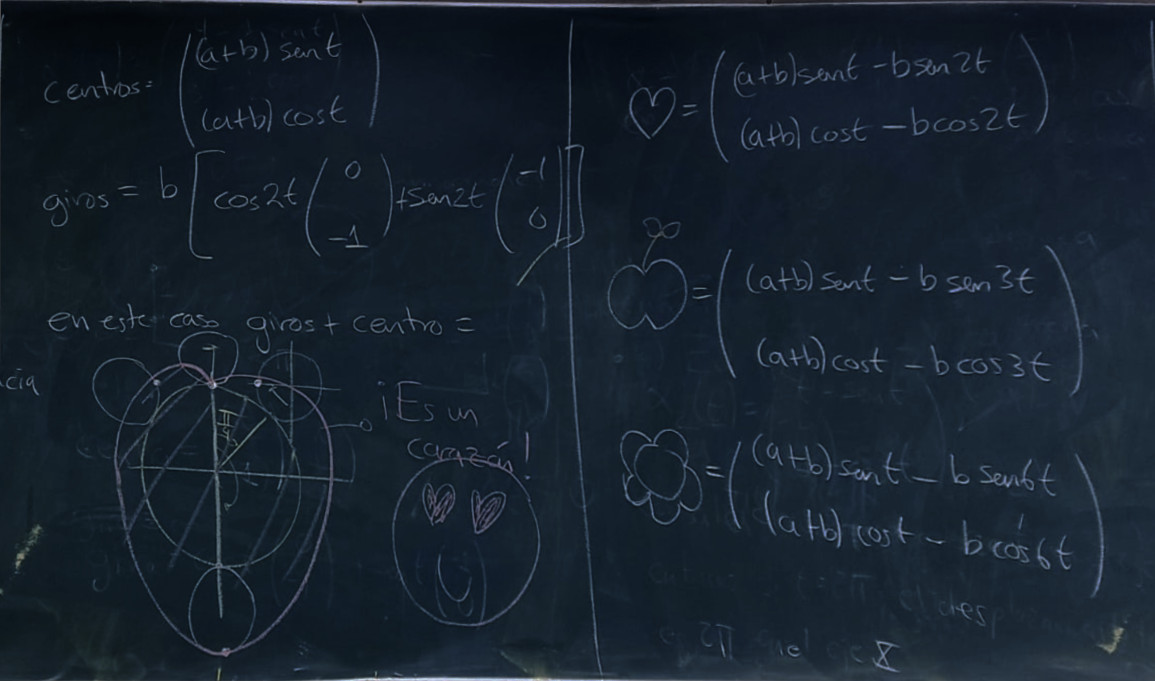 centros = ( (a+b) sent
(a+b) cost )
giros = b [ cos2t ( 0
-1 ) + sen2t ( -1
0 ) ]
en este caso giros + centro =
cia
¡Es un
corazón!
♡ = ( (a+b) sent - b sen 2t
(a+b) cost - b cos 2t )
= ( (a+b) sent - b sen 3t
(a+b) cost - b cos 3t )
= ( (a+b) sent - b sen 6t
(a+b) cost - b cos 6t )